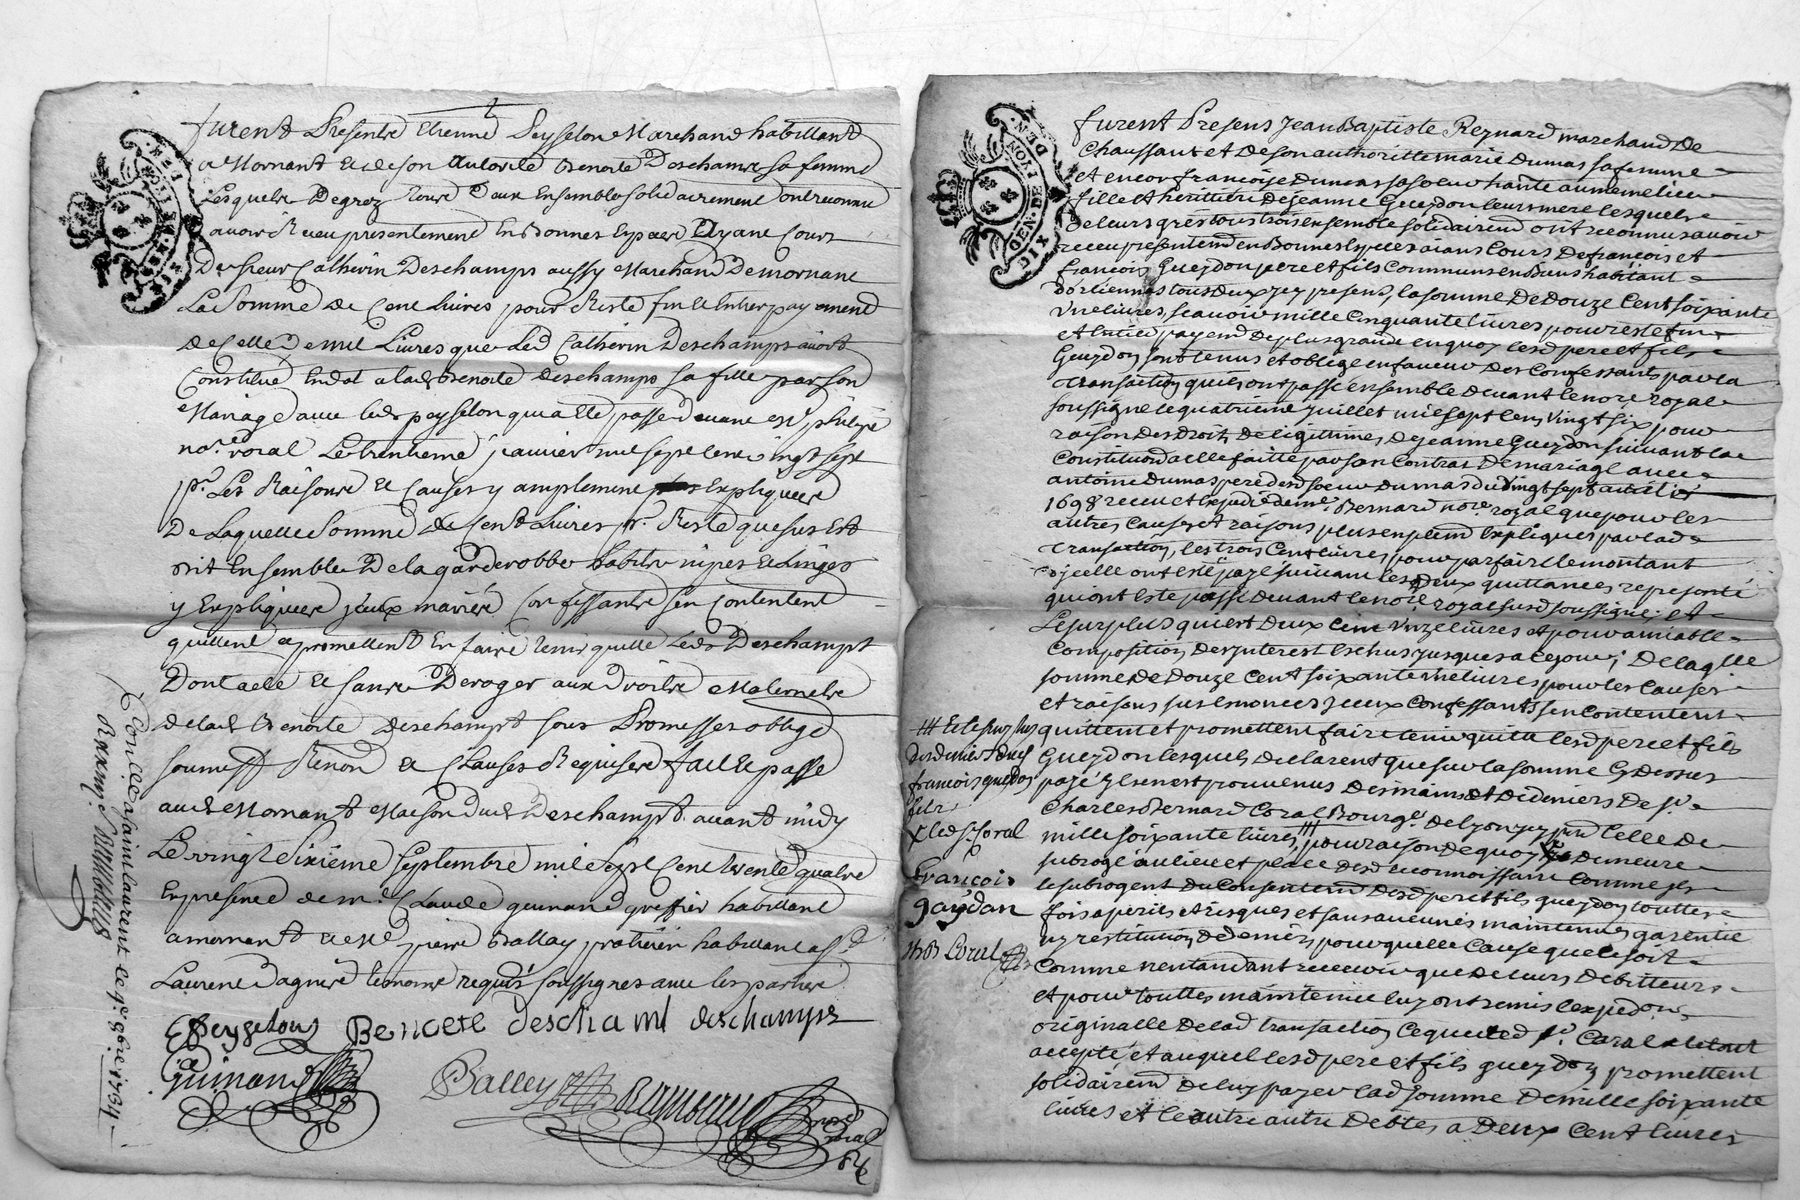 furent Presentz Etienne Peysselon Marchand habittant
a Mornant et de son authorité Benoite Deschamps sa femme
Lesquelz Degrez tous Deux Ensembles solidairement ont reconnu
avoir Receu presentement En Bonnes Espaces Ayant Cours
De sieur Catherin Deschamps aussy Marchand De mornant
La somme de Cent Livres pour Reste fin et Entier payement
de Celle De mil Livres que Led Catherin Deschamps avoit
Constitué En dot a lad Benoite deschamps sa fille par son
Mariage avec led peysselon
no.re royal Le trentieme janvier mil sept Cent vingt sept
p.r Les Raisons et Causes y amplement Expliquées
De Laquelle Somme de Cent Livres p.r Reste que sus Est
soit Ensemble De la garderobbe habits nipes et Linges
y Expliquées jceux mariés Confessantz s'en Contentent
quittent et promettent En faire tenir quitte Led Deschamps
Dont acte et sans Deroger aux droits Maternels
de lad Benoite Deschamps sous Promesses oblige
soumess Renon et Clauses Requises fait et passé
aud Mornant Maison dud Deschamps avant midy
Le vingt sixieme septembre mil sept Cent trente quatre
En presence de m.e Claude guinand greffier habittant
a mornant et pierre Ballay praticien habittant a st
Laurent Dagniere temoins requis soussignes avec les parties
EPeysselon Benoete deschamt deschamps
Guinand
Balley
Conllé a saint laurant le 9.e 8bre 1734
furent Presens Jean Baptiste Reynard marchand De
Chaussant et De son authoritte marie Dumas sa femme
et encor francoise Dumas sa soeur hante au meme lieu
fille et heritiere De Jeanne Gueydon leurs mere lesquels
de leurs gres tous trois ensemble solidairemt ont reconnus avoir
receu presentemt en Bonnes Especes aians Cours De francois et
francois Gueydon pere et fils Communs en biens habitant
Dorlienas tous deux jcy presens, la somme De Douze Cent soixante
Une livres, scavoir mille Cinquante livres pour reste fin
et Entier payemt De plus grande en quoy lesd pere et fils
Gueydon sont tenus et obligé en faveur des Confessants par la
transaction qu'ils ont passé ensemble devant le no.re royal
soussigné le quatrieme Juillet mil sept Cens Vingt six pour
raison Des Droits De legittimes De Jeanne Gueydon suivant la
Constitution a elle faitte par son Contrat De mariage avec
antoine Dumas pere desd soeur Dumas du Vingt sept
1698 receu et Expedié de me. Bernard no.re royal que pour les
autres Causes et raisons plus emplemt Expliques par lad
transaction, les trois Cent livres pour parfaire le montant
d'jcelle ont esté payé suivant les Deux quittances
qui ont esté passé devant le no.re royal susd soussigné, et
Le surplus qui est deux Cent Unze livres et pour amiable
Composition Des jnterest Eschus jusques a Ce jour; De laq.lle
somme De Douze Cent soixante Une livres pour les Causes
et raisons sus Enoncés jceux Confessants s'en Contentent
quittent et promettent faire tenir quitte lesd pere et fils
Gueydon lesquels declarent que sur la somme Cy Dessus
payé jls en est prouvenus Des mains et De deniers De s.r
Charles Bernard Coral Bourg.s De lyon jcy pnt Celle De
mille soixante livres /// pour raison De quoy Demeure
subrogé au lieu et place Desd reconnoissans Comme jls
le subrogent Du Consentemt Desd pere et fils gueydon touttes
fois a perils et risques et sans aucunes maintenues garentie
ny restitution de deniers pour quelle Cause que Ce soit
Comme n'entandant recevoir que De leurs debitteurs
et pour touttes maintenue luy ont remis l'expedon
originalle De lad transaction Ce que led s.r Coral a
accepté et auquel lesd pere et fils gueydon promettent
solidairemt De luy payer lad somme De mille soixante
livres et le autre Debtes a Deux Cent livres
/// Et le surplus
des deniers dud
francois gueydon
fils
x led s.r Coral
francois
gaydan
Coral